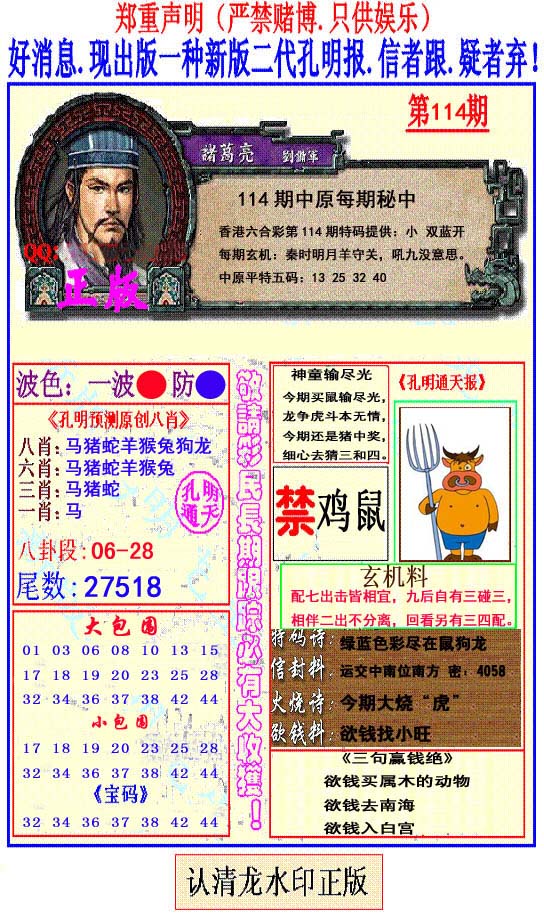 郑重声明（严禁赌博.只供娱乐）
好消息.现出版一种新版二代孔明报.信者跟.疑者弃!
第114期
諸葛亮 劉備軍
114 期中原每期秘中
香港六合彩第 114 期特码提供：小 双蓝开
每期玄机：秦时明月羊守关，吼九没意思。
中原平特五码：13 25 32 40
QQ:
正版
波色：一波 防
《孔明预测原创八肖》
八肖:马猪蛇羊猴兔狗龙
六肖:马猪蛇羊猴兔
三肖:马猪蛇
一肖:马
孔明
通天
八卦段:06-28
尾数:27518
大包围
01 03 06 08 10 13 15
17 18 19 20 23 25 28
32 34 36 37 38 42 44
小包围
17 18 19 20 23 25 28
32 34 36 37 38 42 44
《宝码》
32 34 36 37 38 42 44
敬請彩民長期跟踪必有大收獲！
神童输尽光
今期买鼠输尽光，
龙争虎斗本无情，
今期还是猪中奖，
细心去猜三和四。
《孔明通天报》
禁鸡鼠
玄机料
配七出击皆相宜，九后自有三碰三，
相伴二出不分离，回看另有三四配。
特码诗：绿蓝色彩尽在鼠狗龙
信封料：运交中南位南方 密：4058
火烧诗：今期大烧“虎”
欲钱料：欲钱找小旺
《三句赢钱绝》
欲钱买属木的动物
欲钱去南海
欲钱入白宫
认清龙水印正版